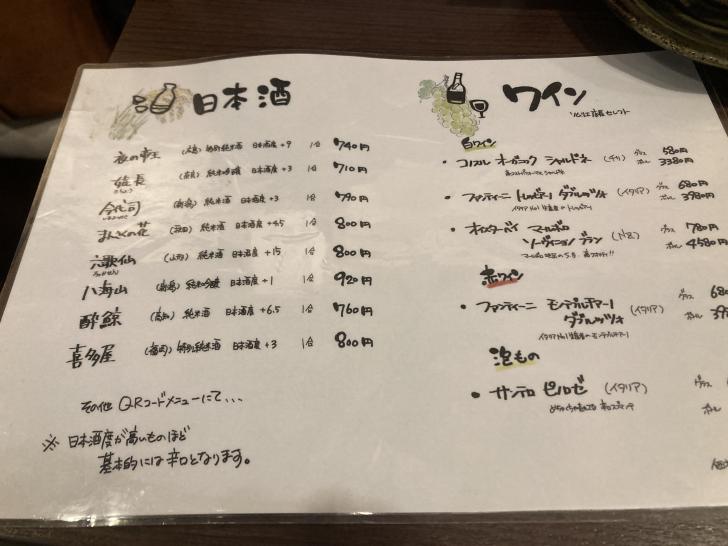 日本酒
夜の帝王 (広島) 特別純米酒 日本酒度 +9 1合 740円
(奈良) 純米吟醸 日本酒度 +3 1合 710円
今代司 (新潟) 純米酒 日本酒度 +3 1合 790円
まんさくの花 (秋田) 純米酒 日本酒度 +4.5 1合 800円
六歌仙 (山形) 純米酒 日本酒度 +15 1合 800円
八海山 (新潟) 純米吟醸 日本酒度 +1 1合 920円
酔鯨 (高知) 純米酒 日本酒度 +6.5 1合 760円
喜多屋 (福岡) 特別純米酒 日本酒度 +3 1合 800円
その他 QRコードメニューにて...
※ 日本酒度が高いものほど
基本的には辛口となります。
ワイン
セレクト
白ワイン
・コノスル オーガニック シャルドネ (チリ) グラス 580円
ボトル 3380円
・ファンティーニ トレッビアーノ ダブルッツォ (イタリア) グラス 680円
ボトル 3980円
・オイスターベイ マールボロ グラス 780円
ソーヴィニヨン ブラン (NZ) ボトル 4580円
赤ワイン
・ファンティーニ モンテプルチアーノ グラス
ダブルッツォ (イタリア) ボトル
泡もの
・サンテロ ピノロゼ (イタリア) グラス
ボトル